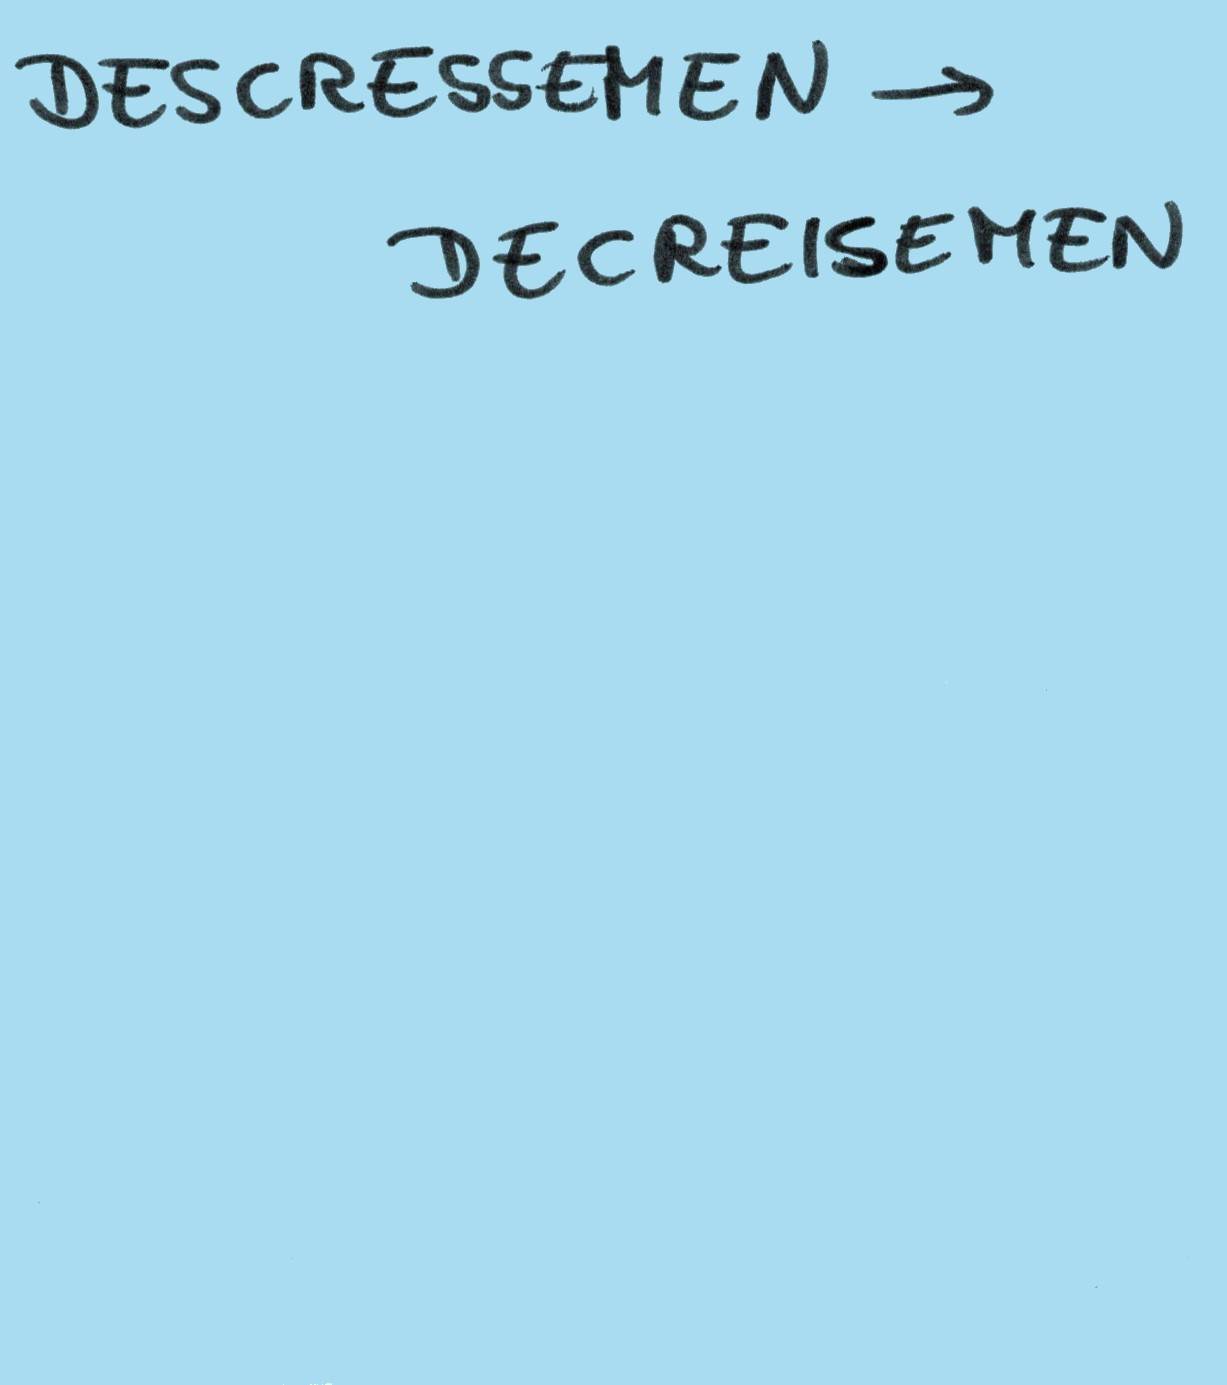 DESCRESSEMEN →
DECREISEMEN